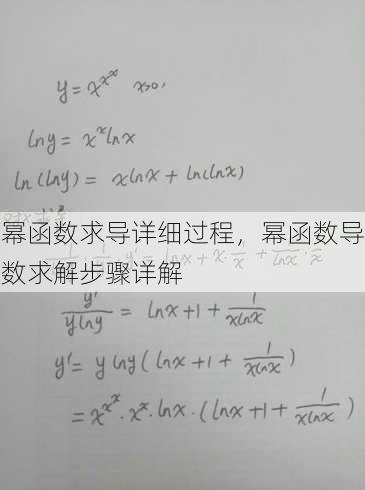 y = x^{x^x} x>0,
lny = x^x lnx
ln(lny) = xlnx + ln(lnx)
幂函数求导详细过程，幂函数导
数求解步骤详解
y'/(ylny) = lnx+1+ 1/(xlnx)
y' = ylny(lnx+1+ 1/(xlnx))
= x^{x^x}·x^x·lnx·(lnx+1+ 1/(xlnx))